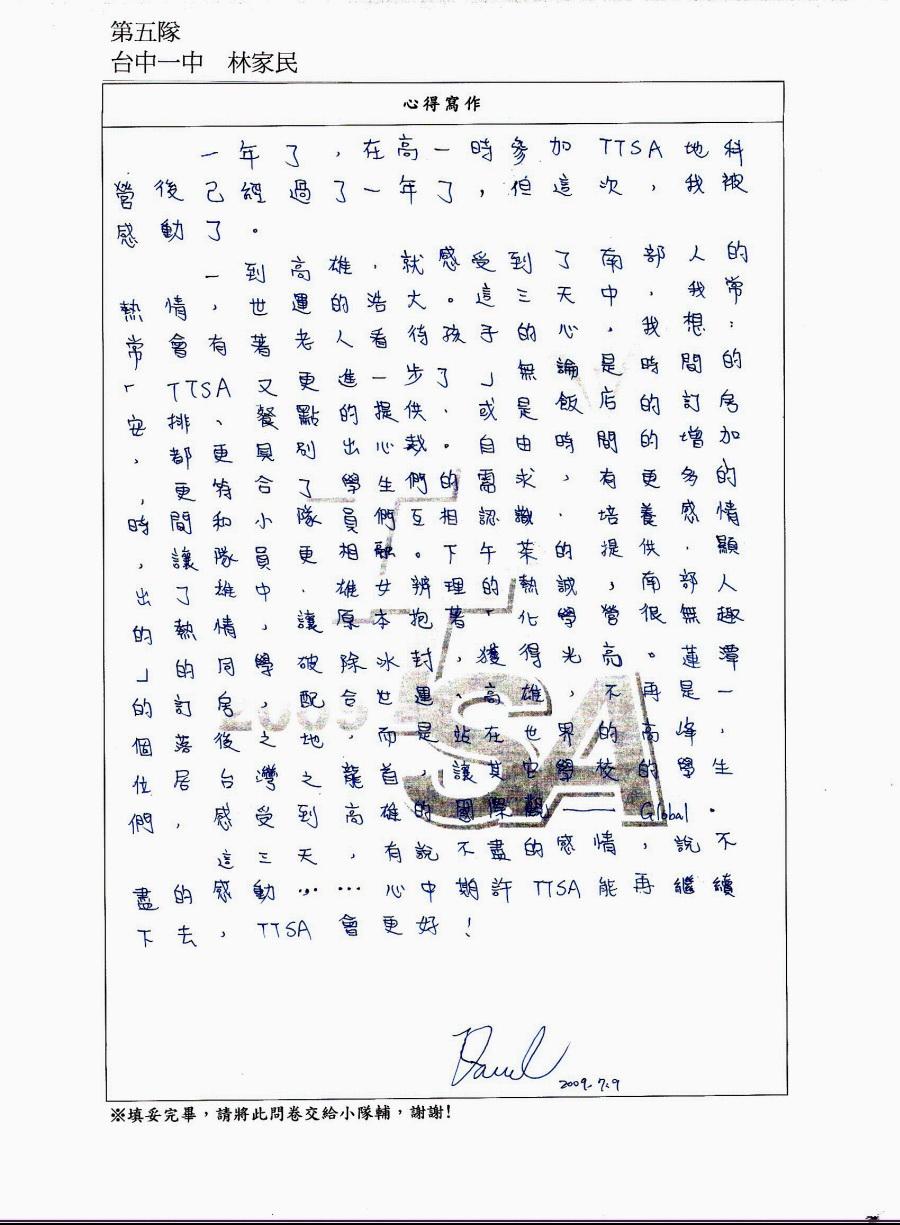 第五隊
台中一中 林家民
心得寫作
一年了，在高一時參加 TTSA 地科
營後已經過了一年了，但這次，我被
感動了。
一到高雄，就感受到了南部人的
熱情，世運的浩大。這三天中，我常
常會有著老人看待孩子的心，我想：
「TTSA 又更進一步了」無論是時間的
安排、餐點的提供、或是飯店的訂房
，都更具別出心裁。自由時間的增加
，更符合了學生們的需求，有更多的
時間和小隊員們互相認識、培養感情
，讓隊員更相融。下午茶的提供，顯
出了雄中、雄女辨理的熱誠，南部人
的熱情，讓原本抱著「化學營很無趣
」的同學破除冰封，獲得光亮。蓮潭
的訂房，配合世運、高雄，不再是一
個落後之地，而是站在世界的高峰，
位居台灣之龍首，讓其它學校的學生
們，感受到高雄的國際觀——Global。
這三天，有說不盡的感情，說不
盡的感動……心中期許 TTSA 能再繼續
下去，TTSA 會更好！
2009.7.9
※填妥完畢，請將此問卷交給小隊輔，謝謝!
TTSA